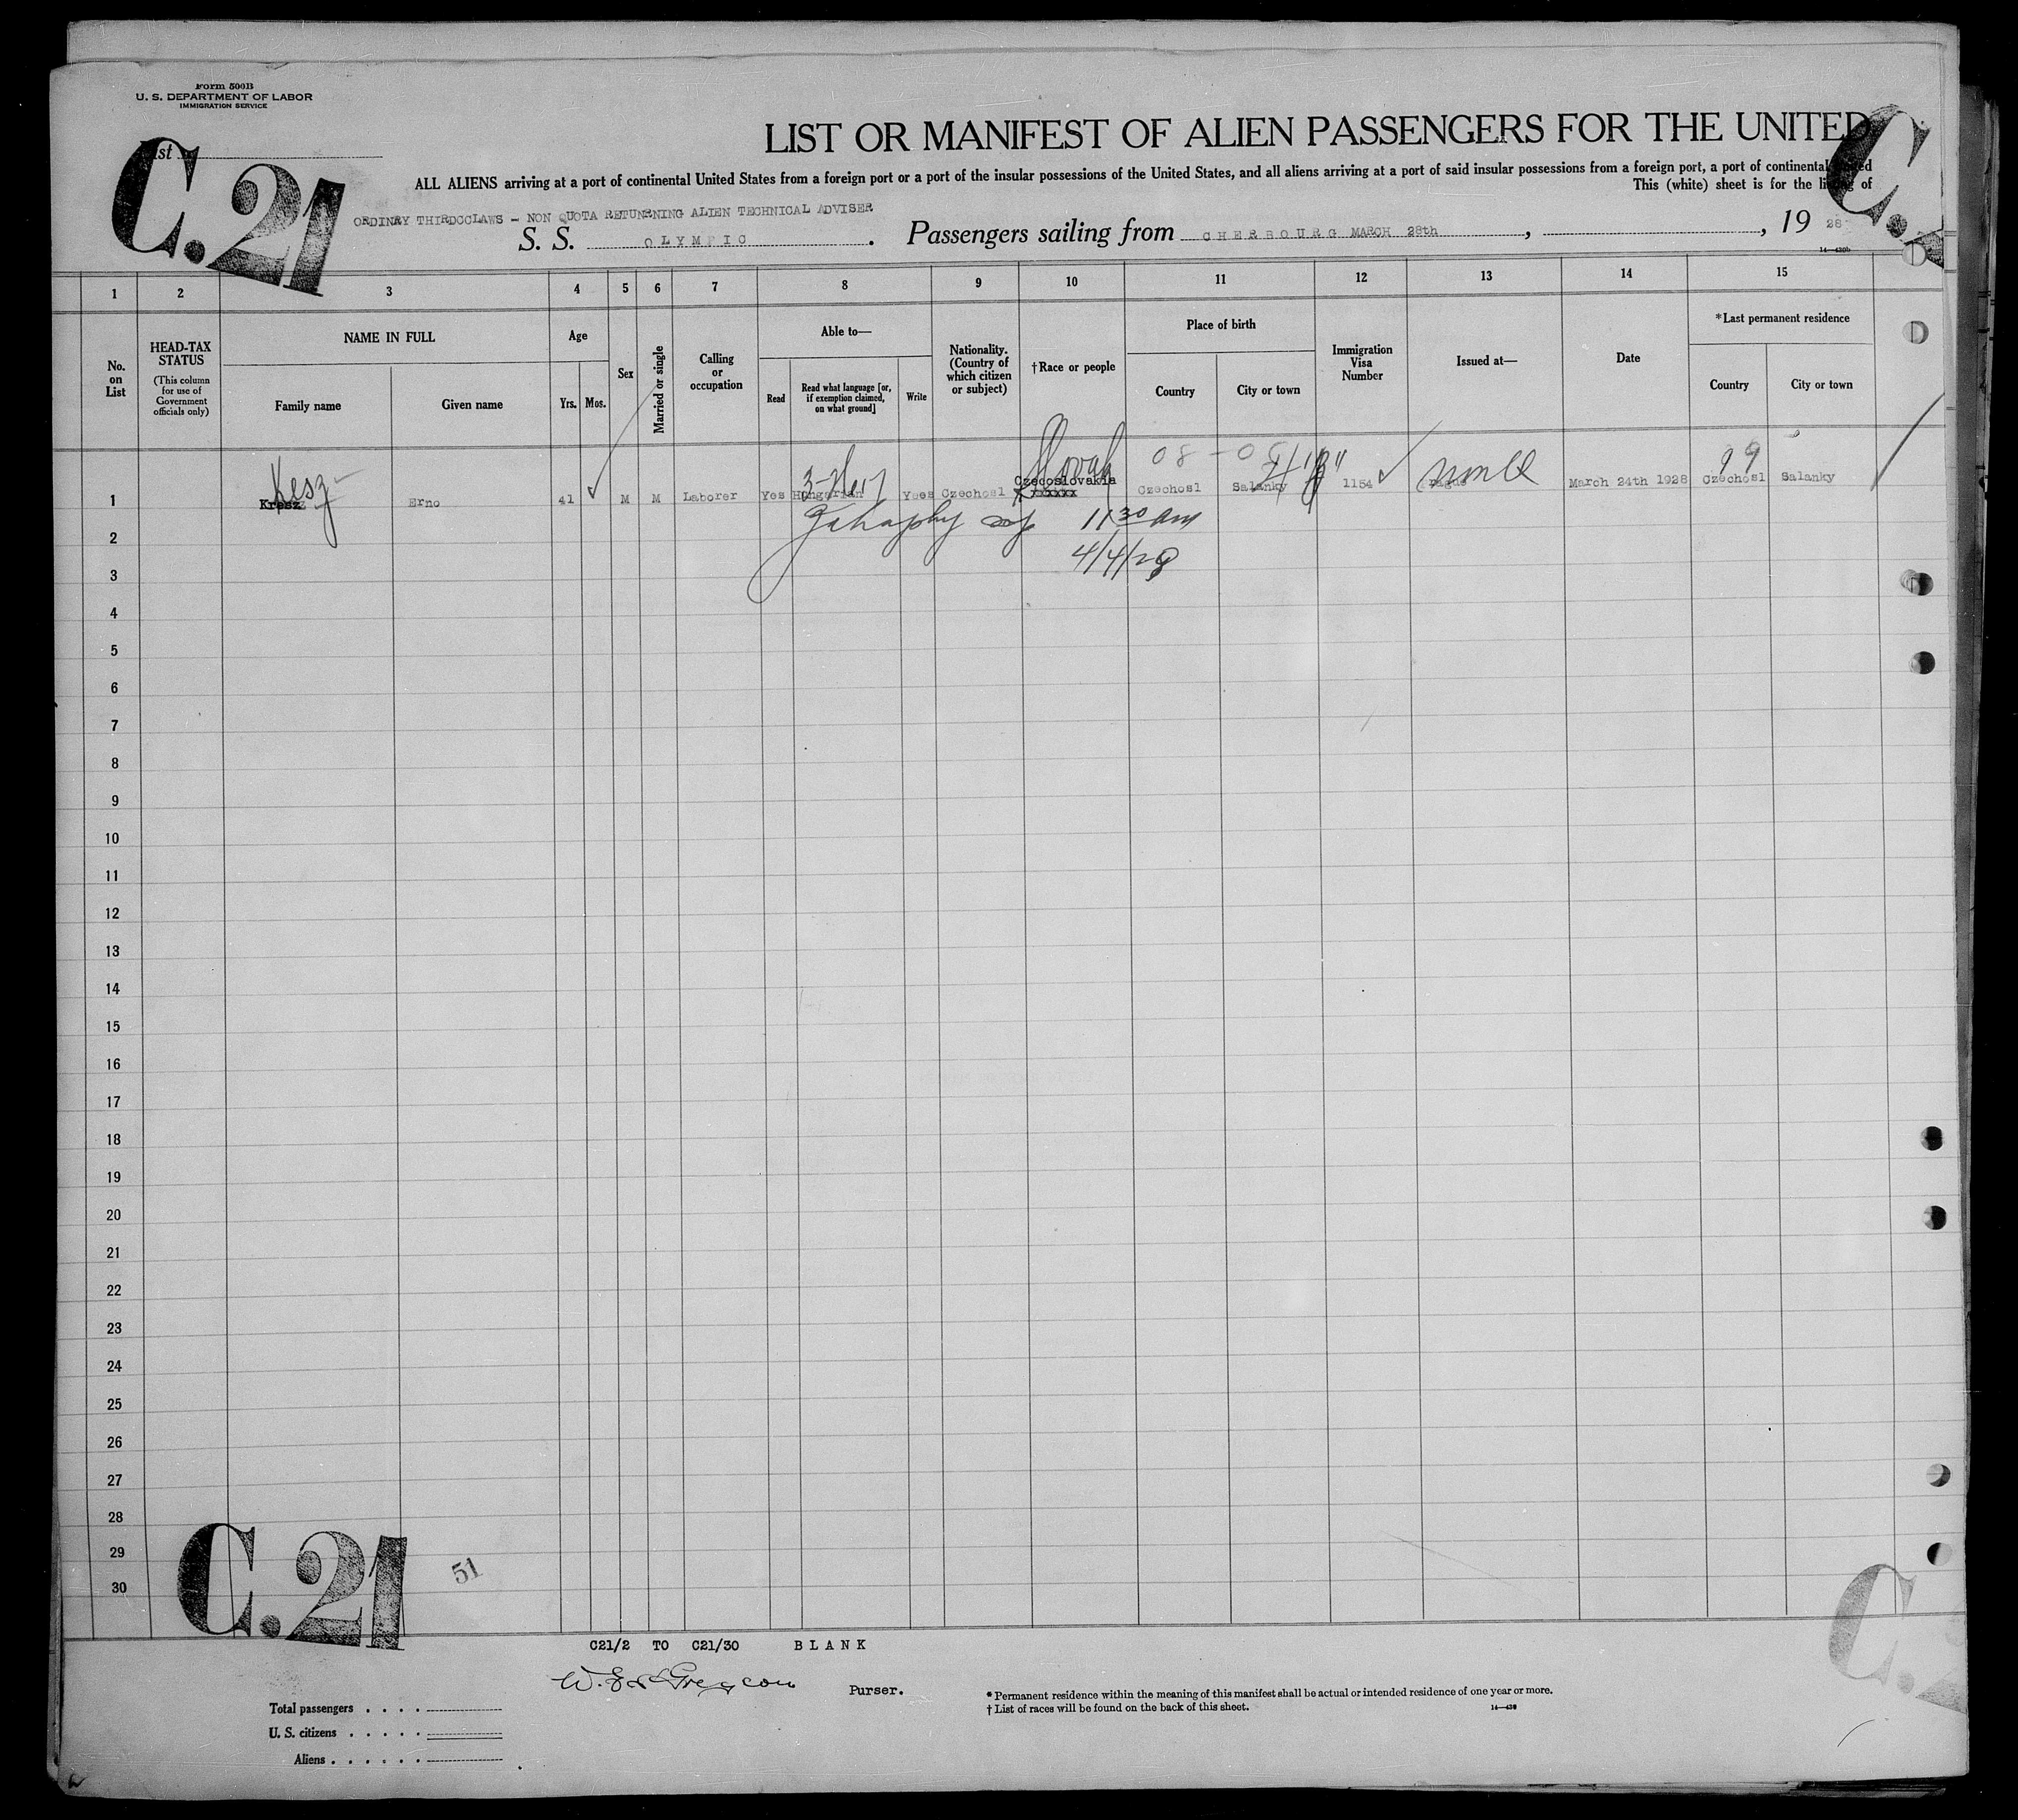 Form 500B
U. S. DEPARTMENT OF LABOR
IMMIGRATION SERVICE
C.21
C.
LIST OR MANIFEST OF ALIEN PASSENGERS FOR THE UNITED
ALL ALIENS arriving at a port of continental United States from a foreign port or a port of the insular possessions of the United States, and all aliens arriving at a port of said insular possessions from a foreign port, a port of continental
This (white) sheet is for the listing of
ORDINRY THIRDCCLAWS - NON QUOTA RETUNRNING ALIEN TECHNICAL ADVISER
S. S. OLYMPIC. Passengers sailing from CHERBOURG MARCH 28th, , 19 28
14—430b
1 2 3 4 5 6 7 8 9 10 11 12 13 14 15
No. on List
HEAD-TAX STATUS
(This column for use of Government officials only)
NAME IN FULL
Family name
Given name
Age
Yrs.
Mos.
Sex
Married or single
Calling or occupation
Able to—
Read
Read what language [or, if exemption claimed, on what ground]
Write
Nationality. (Country of which citizen or subject)
†Race or people
Place of birth
Country
City or town
Immigration Visa Number
Issued at—
Date
*Last permanent residence
Country
City or town
Kesz
Slovak
08 - 08
99
1 Kresz Erno 41 M M Laborer Yes Hungarian Yues Czechosl Czecoslovakia xxxxxx Czechosl Salanky 1154 Prague March 24th 1928 Czechosl Salanky
11 30 am
4/4/28
2
3
4
5
6
7
8
9
10
11
12
13
14
15
16
17
18
19
20
21
22
23
24
25
26
27
28
29
30
C.21
51
C.
C21/2 TO C21/30 BLANK
Purser.
Total passengers
U. S. citizens
Aliens
* Permanent residence within the meaning of this manifest shall be actual or intended residence of one year or more.
† List of races will be found on the back of this sheet.
14—430